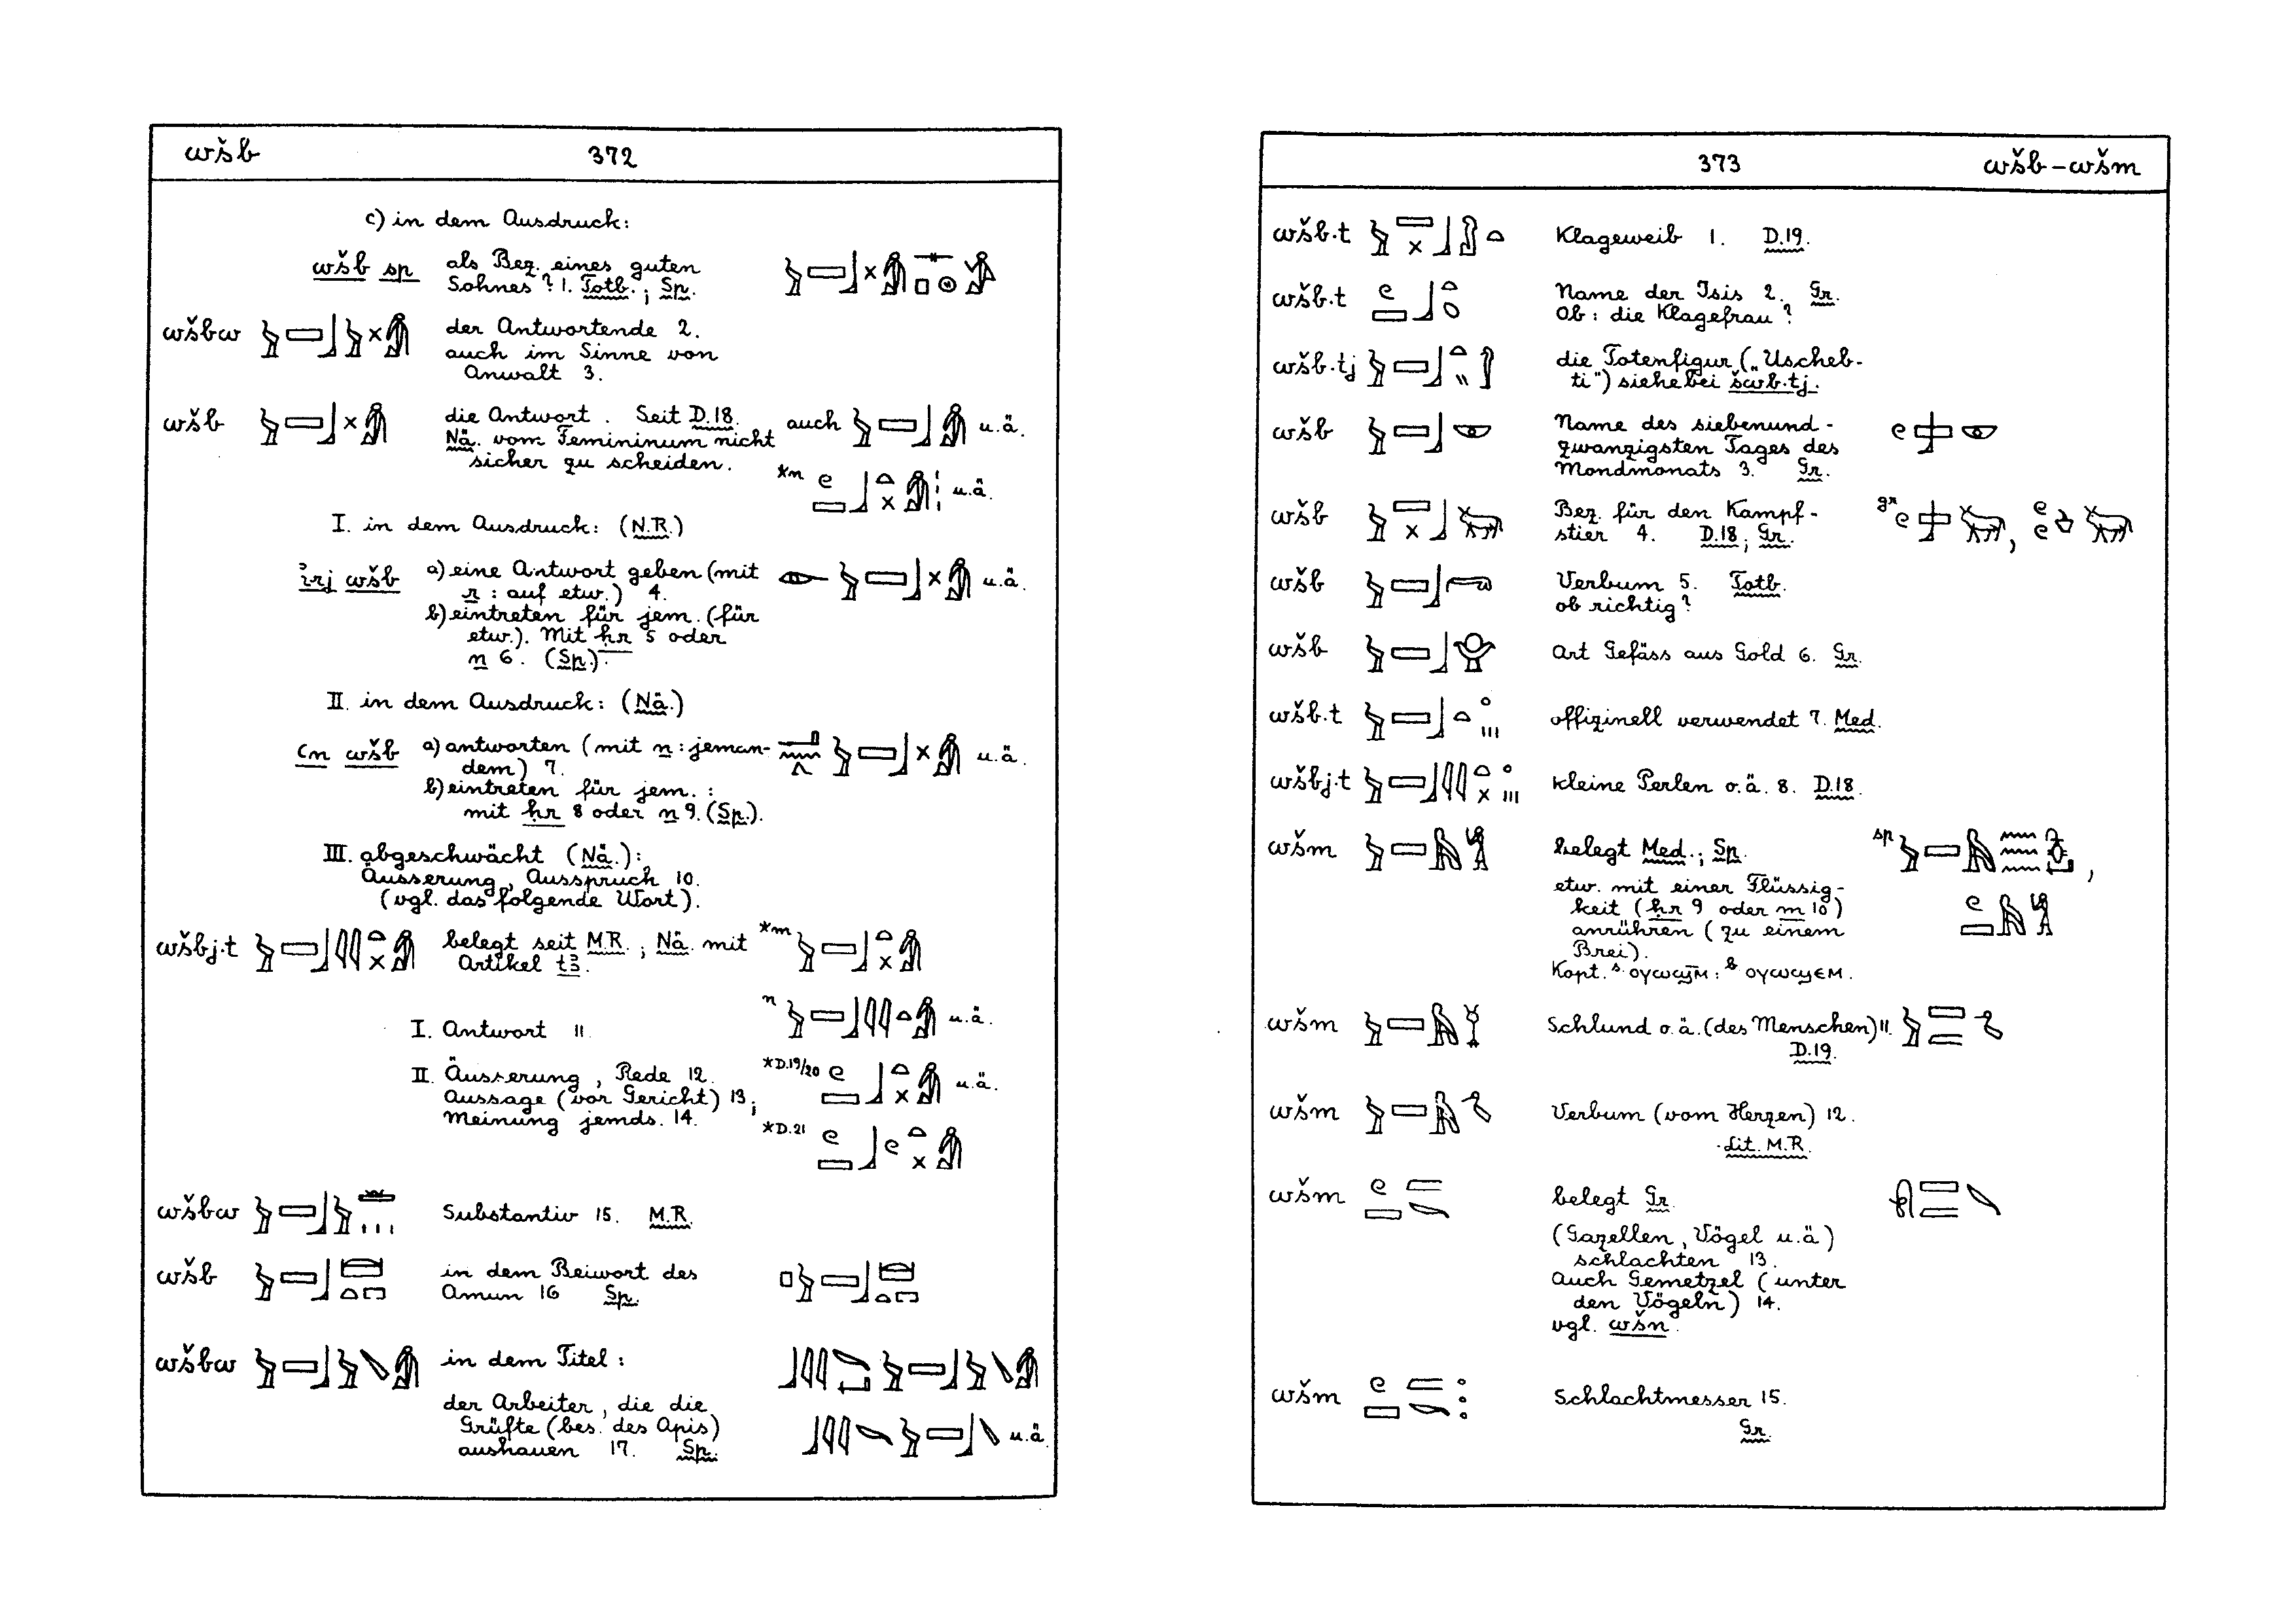 wšb 372
c) in dem Ausdruck:
wšb sp als Bez. eines guten
Sohnes? 1. Totb.; Sp.
wšbw der Antwortende 2.
auch im Sinne von
Anwalt 3.
wšb die Antwort. Seit D.18. auch u.ä.
Nä. vom Femininum nicht
sicher zu scheiden.
*n u.ä.
I. in dem Ausdruck: (N.R.)
irj wšb a) eine Antwort geben (mit u.ä.
r: auf etw.) 4.
b) eintreten für jem. (für
etw.). Mit ḥr 5 oder
n 6. (Sp.).
II. in dem Ausdruck: (Nä.)
ꜥn wšb a) antworten (mit n: jeman- u.ä.
dem) 7.
b) eintreten für jem.:
mit ḥr 8 oder n 9. (Sp.).
III. abgeschwächt (Nä.):
Äusserung, Ausspruch 10.
(vgl. das folgende Wort).
wšbj.t belegt seit M.R.; Nä. mit *m
Artikel tꜣ.
n u.ä.
I. Antwort 11.
II. Äusserung, Rede 12. *D.19/20 u.ä.
Aussage (vor Gericht) 13;
Meinung jemds. 14. *D.21
wšbw Substantiv 15. M.R.
wšb in dem Beiwort des
Amun 16 Sp.
wšbw in dem Titel:
der Arbeiter, die die
Grüfte (bes. des Apis) u.ä.
aushauen 17. Sp.
373 wšb – wšm
wšb.t Klageweib 1. D.19.
wšb.t Name der Isis 2. Gr.
Ob: die Klagefrau?
wšb.tj die Totenfigur („Uscheb-
ti“) siehe bei šwb.tj.
wšb Name des siebenund-
zwanzigsten Tages des
Mondmonats 3. Gr.
wšb Bez. für den Kampf- gr
stier 4. D.18; Gr.
wšb Verbum 5. Totb.
ob richtig?
wšb Art Gefäss aus Gold 6. Gr.
wšb.t offizinell verwendet 7. Med.
wšbj.t kleine Perlen o.ä. 8. D.18.
wšm belegt Med.; Sp. sp
etw. mit einer Flüssig-
keit (ḥr 9 oder m 10)
anrühren (zu einem
Brei).
Kopt. s. ⲟⲩⲱϣⲙ̄: b ⲟⲩⲱϣⲉⲙ.
wšm Schlund o.ä. (des Menschen) 11.
D.19.
wšm Verbum (vom Herzen) 12.
Lit. M.R.
wšm belegt Gr.
(Gazellen, Vögel u.ä)
schlachten 13.
Auch Gemetzel (unter
den Vögeln) 14.
vgl. wšn.
wšm Schlachtmesser 15.
Gr.